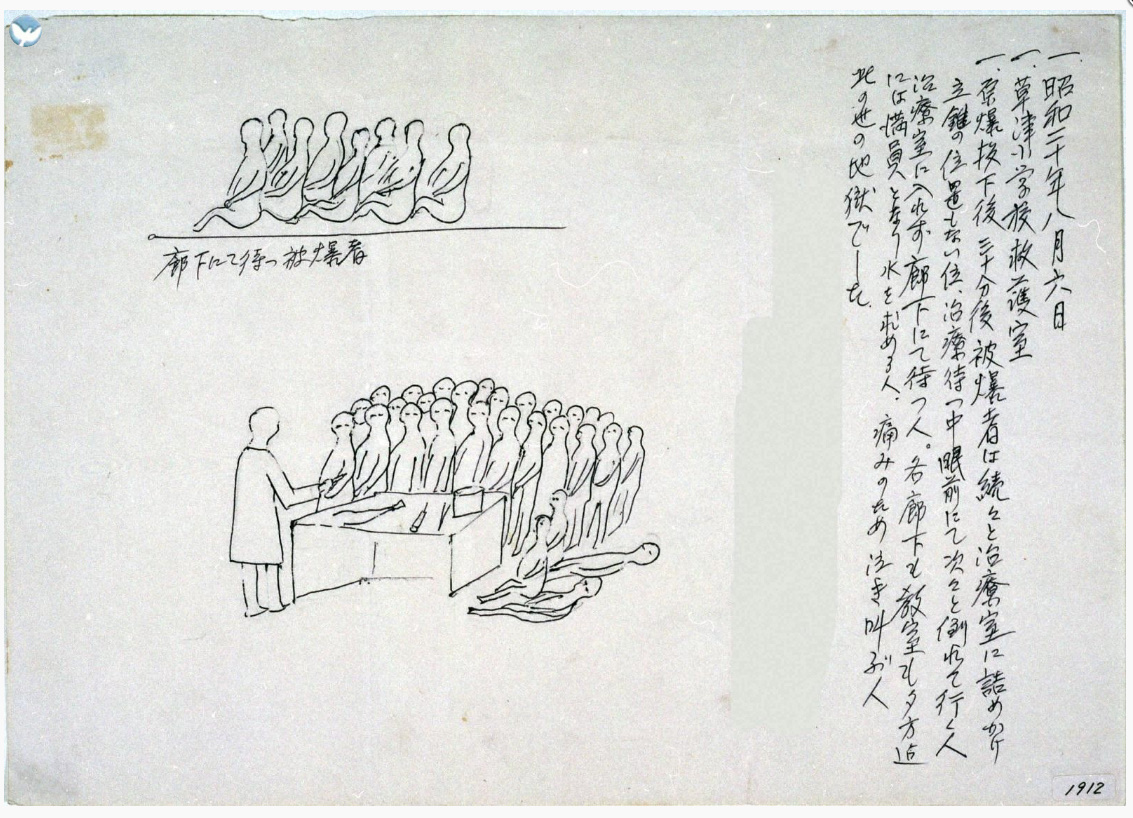 一、昭和二十年八月六日
一、草津小学校救護室
一、原爆投下後三十分後被爆者は続々と治療室に詰めかけ
立錐の位置もない位、治療待つ中眼前にて次々と倒れて行く人
治療室に入れず廊下にて待つ人。各廊下も教室も夕方迄
には満員となり水を求める人、痛みのため泣き叫ぶ人
此の世の地獄でした。
廊下にて待つ被爆者
1912